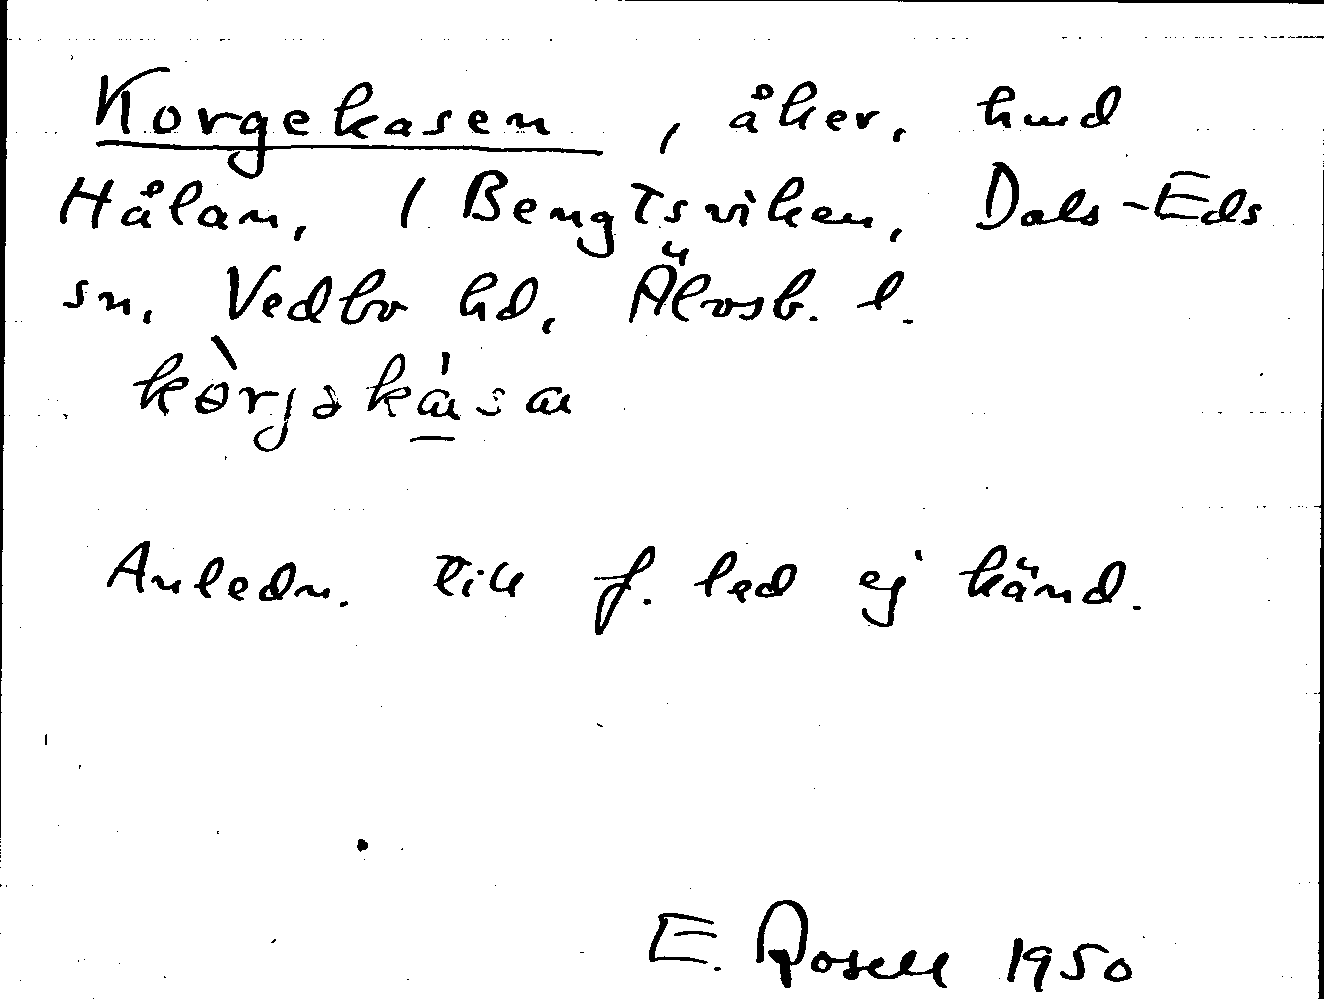 Korgekasen, åker, hmd
Hålan, 1 Bengtsviken, Dals-Eds
sn, Vedbo hd, Älvsb. l.
Anledn. till f. led ej känd.
E. Rosell 1950